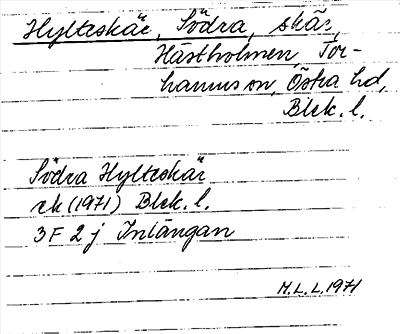 Hylteskär, Södra, skär,
Hästholmen, Tor-
hamns sn, Östra hd,
Blek. l.
Södra Hylteskär
ek (1971) Blek. l.
3F 2j Inlängan
M.L.L. 1971